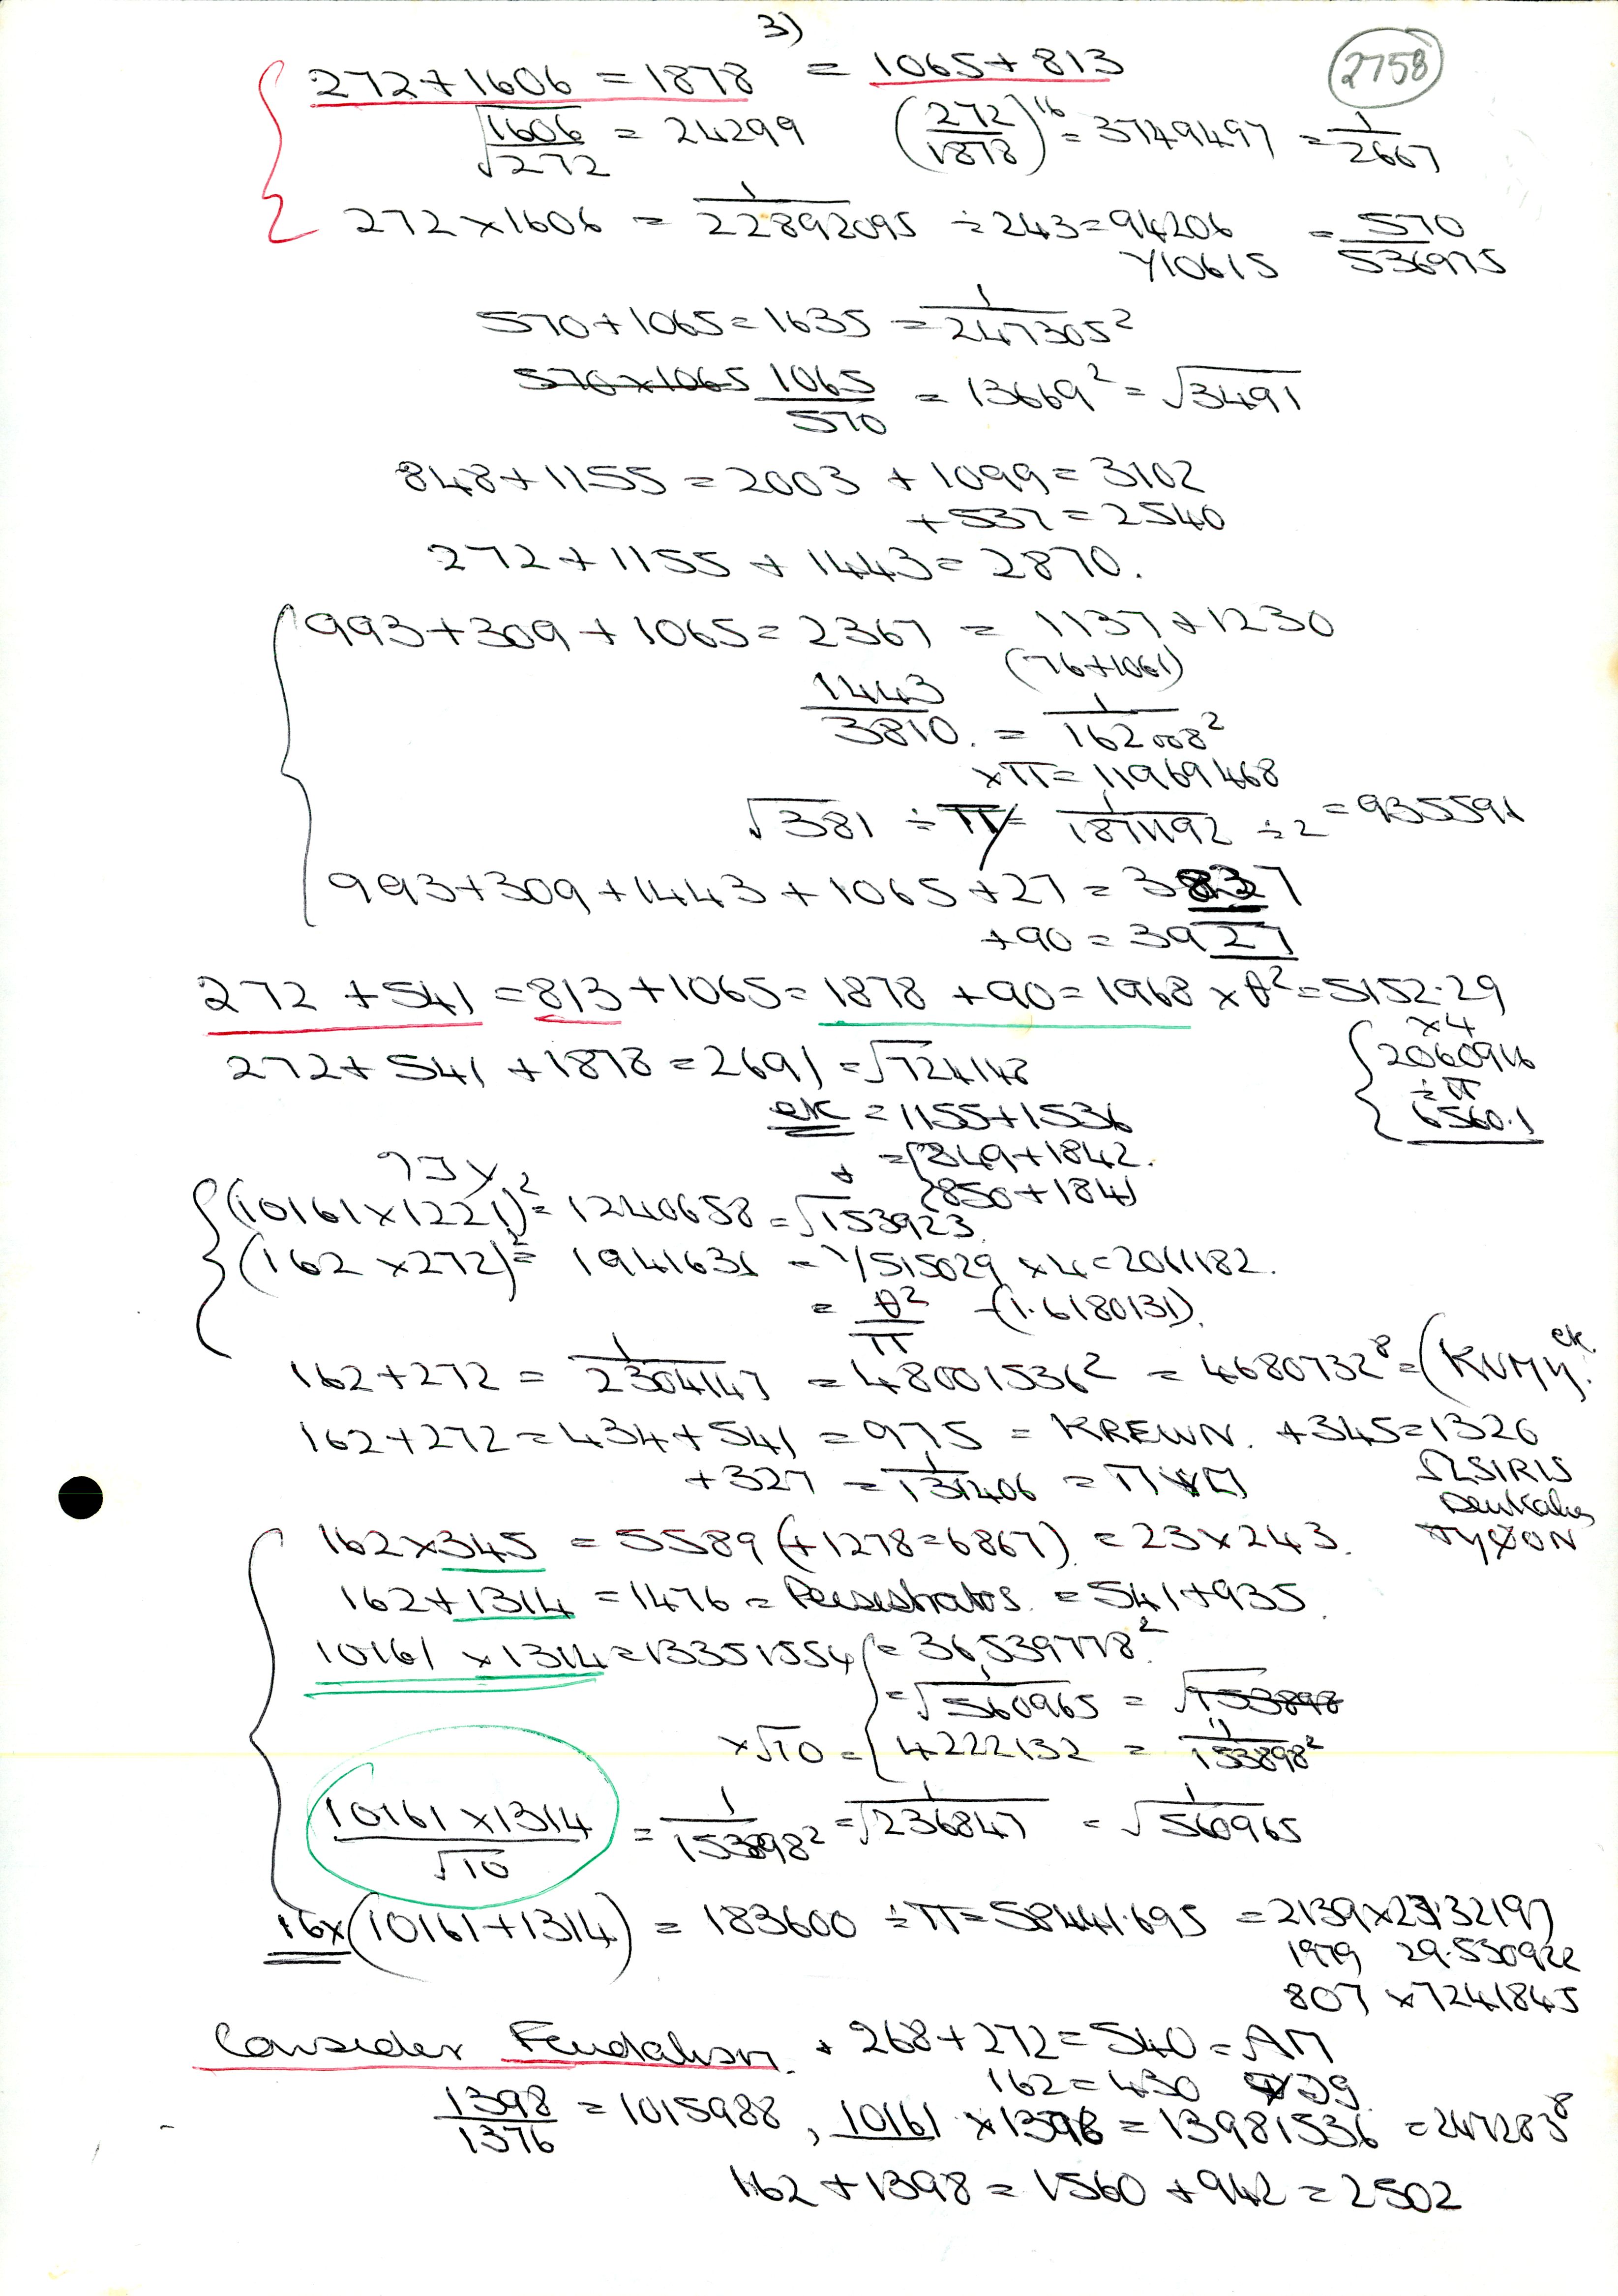 3)
2758
272 + 1606 = 1878 = 1065 + 813
√1606/√272 = 24299 (272/1878)^16 = 3749497 = 1/2667
272 × 1606 = 1/22892095 ÷ 243 = 94206 = 570/536975
Y10615
570 + 1065 = 1635 = 1/247305²
570 × 1065 1065/570 = 13669² = √3491
848 + 1155 = 2003 + 1099 = 3102
+ 537 = 2540
272 + 1155 + 1443 = 2870.
993 + 309 + 1065 = 2367 = 1137 + 1230
(76+1061)
1443/3810. = 1/162008²
× π = 11969468
√381 ÷ π = 1/1871192 ÷ 2 = 935591
993 + 309 + 1443 + 1065 + 27 = 3837
+ 90 = 3927
272 + 541 = 813 + 1065 = 1878 + 90 = 1968 × θ² = 5152.29
× 4
272 + 541 + 1878 = 2691 = √724148
2060916
÷ π
6560.1
ek = 1155 + 1536
= {849 + 1842.
{850 + 1841
(10161 × 1221)² = 1240658 = √153923.
(162 × 272)² = 1941631 = 1/515029 × 4 = 2061182.
= θ²/π - (1.6180131).
162 + 272 = 1/2304147 = 48001536² = 4680732⁸ =
162 + 272 = 434 + 541 = 975 = KREWN. + 345 = 1320
+ 327 = 1/131406 =
ΩSIRIS
162 × 345 = 5589 (+1278 = 6867) = 23 × 243.
162 + 1314 = 1476 = Peisistratos. = 541 + 935.
10161 × 1314 = 13351554 { = 36,539778²
= √1/560965 = √153898
× √10 = { 4222132 = 1/153898²
10161 × 1314/√10 = 1/153898² = √1/236847 = √1/560965
16 × (10161 + 1314) = 183600 ÷ π = 58441.695 = 2139 × 27.32197
1979 29.530922
807 × 7241845
Consider Feudalism. + 268 + 272 = 540 = ΑΠ
162 = 430
1398/1376 = 1015988, 10161 × 1376 = 13981536 = 247283⁸
162 + 1398 = 1560 + 942 = 2502